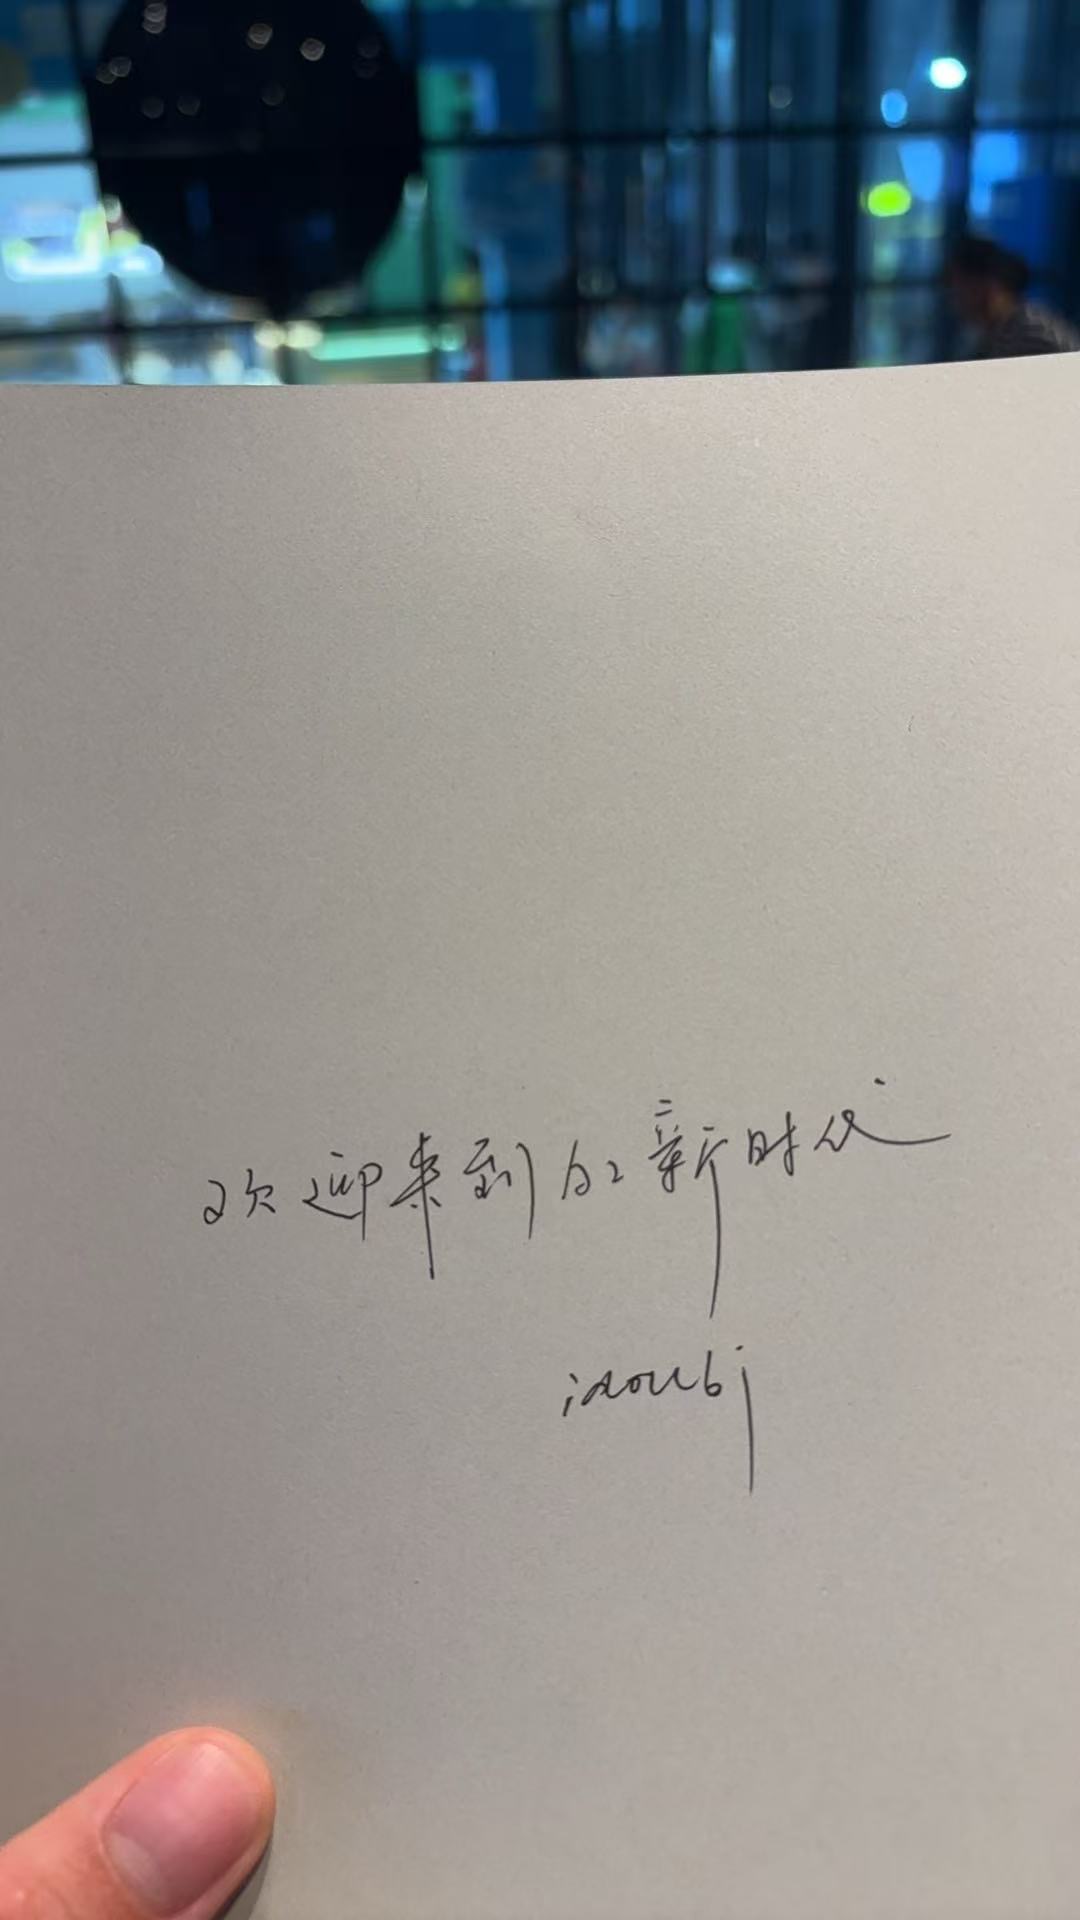 欢迎来到AI新时代
idoubi